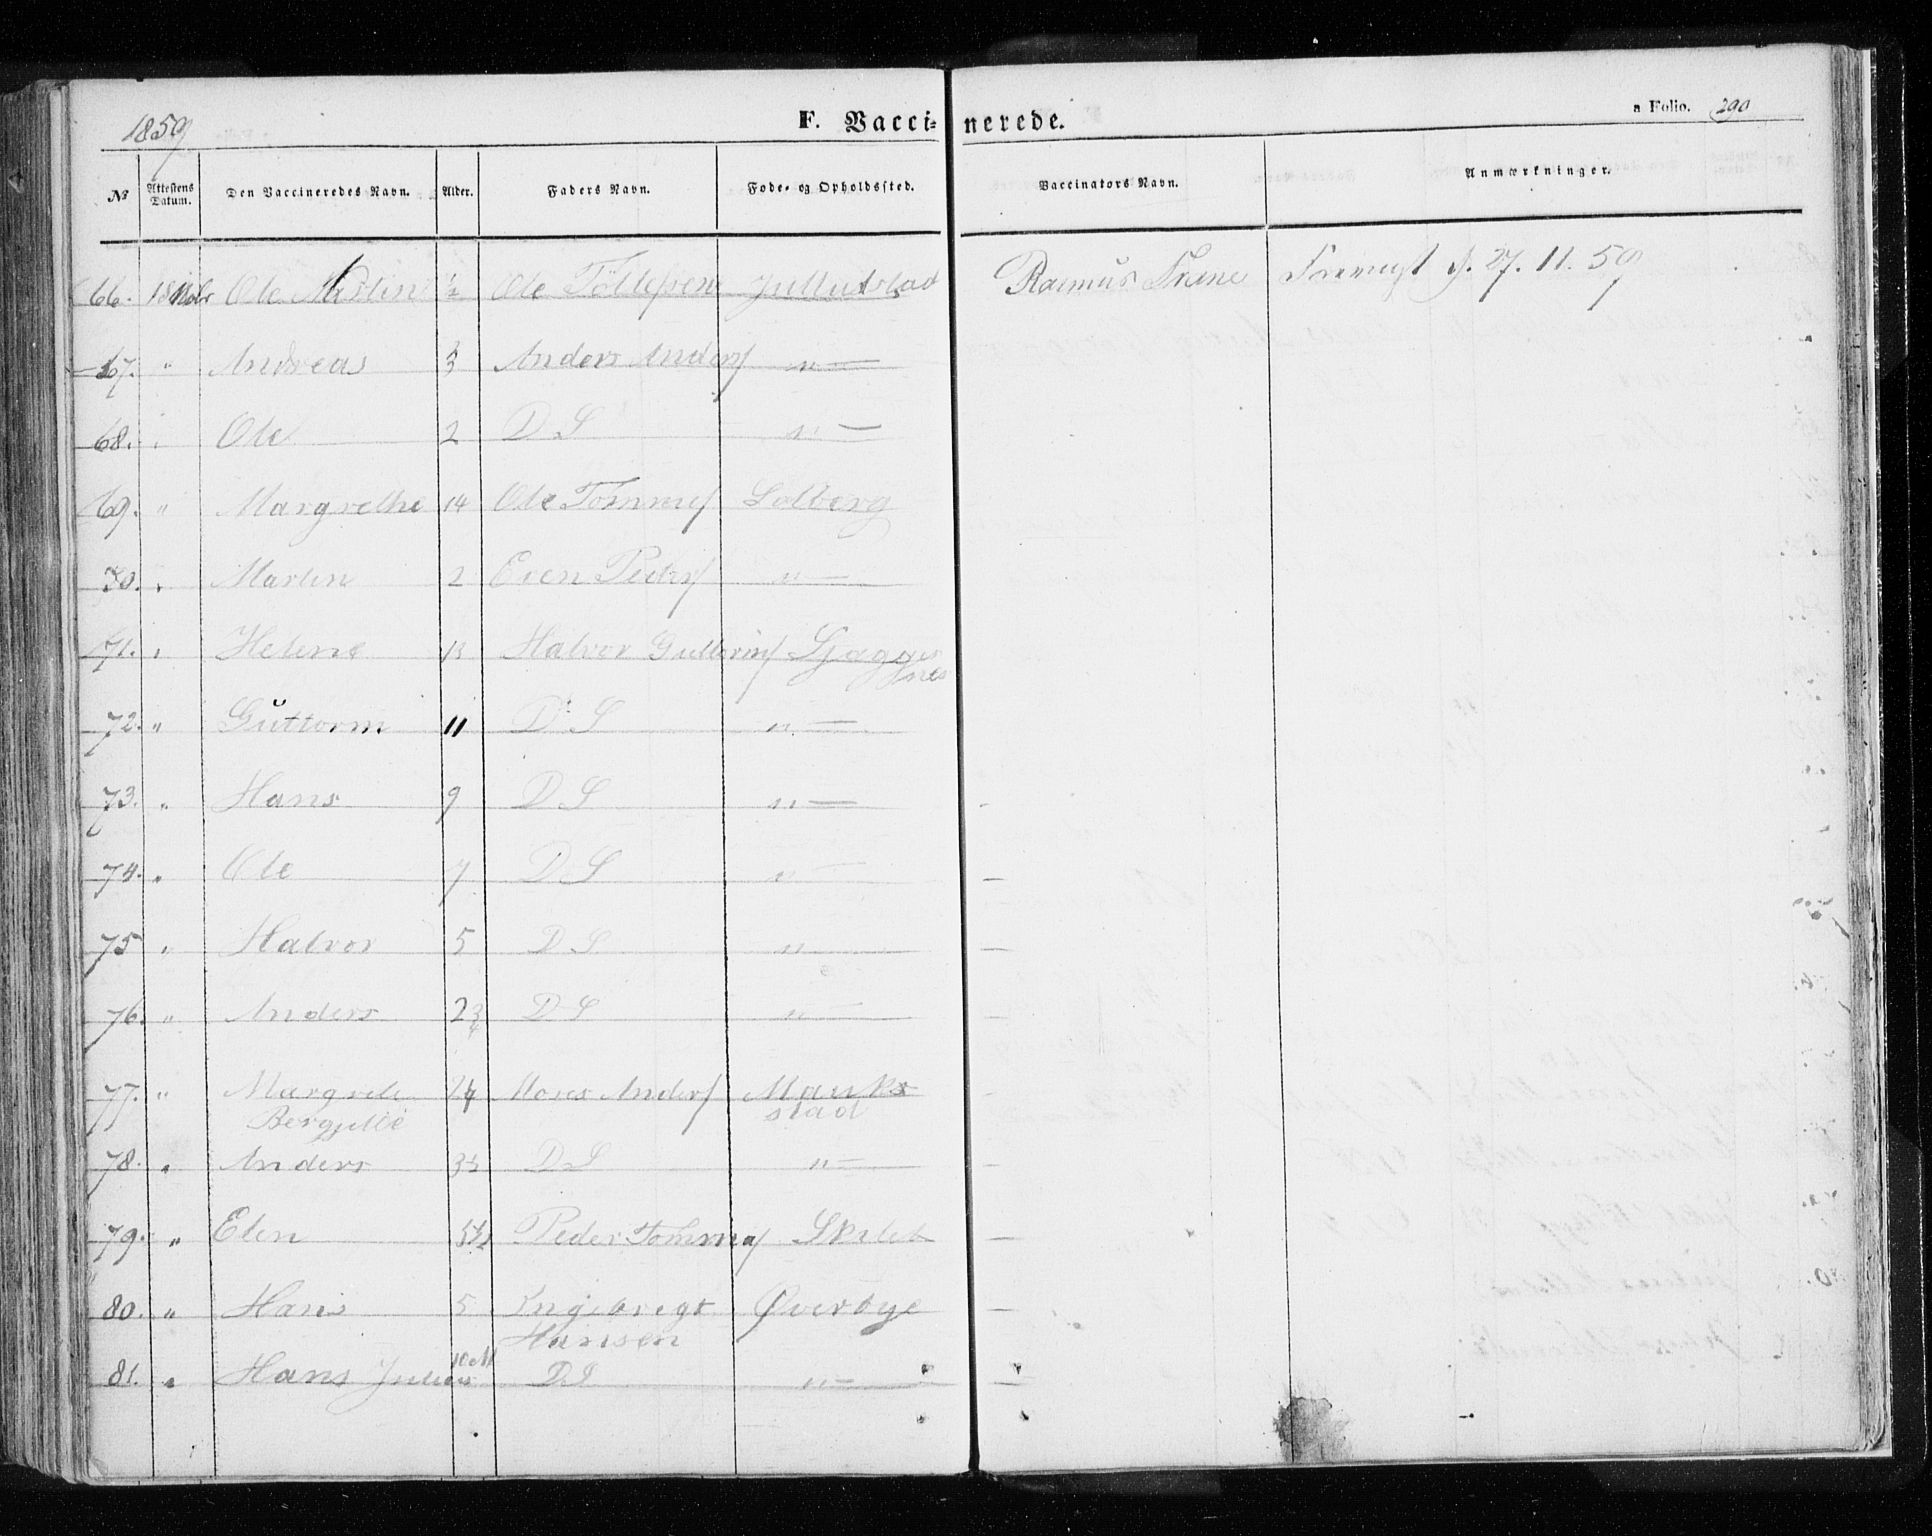 1859
F. Vaccinerede.
a Folio. 290
No Attestens Datum. Den Vaccineredes Navn. Alder. Faders Navn. Føde- og Opholdssted. Vaccinators Navn. Anmærkninger.
66. 18 Ole Martin ½ Ole Jullutstad Rasmus Frane d. 27. 11. 59
67. " Andreas Anders Anders/ " —
68. Ole 2 D S " —
69. " Margrethe 14 Ole Tommes/ Solberg
70. " Martin 2 Even Peders/ " —
71. " Helene 13 Halvor Guttorms/ Sjaggesnes
72. " Guttorm 11 D S " —
73. " Hans 9 D S " —
74. " Ole 7 D S " —
75 " Halvor 5 D S " —
76. " Anders 2¾ D S " —
77. " Margrete Anders/ Mauks
Bergitte stad
78. " Anders 3½ D S " —
79. " Elen 5½ Peder Tomma/
80. " Hans 5 Engebregt Øverbye
Hansen
81. " Hans Julius 10 M D S " —